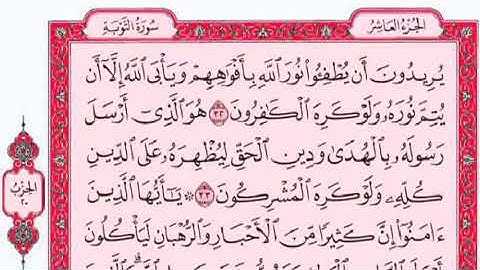 الجزء العاشر
سورة التوبة
يُرِيدُونَ أَن يُطْفِـُٔوا۟ نُورَ ٱللَّهِ بِأَفْوَٰهِهِمْ وَيَأْبَى ٱللَّهُ إِلَّآ أَن
يُتِمَّ نُورَهُۥ وَلَوْ كَرِهَ ٱلْكَٰفِرُونَ ٣٢ هُوَ ٱلَّذِىٓ أَرْسَلَ
رَسُولَهُۥ بِٱلْهُدَىٰ وَدِينِ ٱلْحَقِّ لِيُظْهِرَهُۥ عَلَى ٱلدِّينِ
كُلِّهِۦ وَلَوْ كَرِهَ ٱلْمُشْرِكُونَ ٣٣ ۞ يَٰٓأَيُّهَا ٱلَّذِينَ
ءَامَنُوٓا۟ إِنَّ كَثِيرًا مِّنَ ٱلْأَحْبَارِ وَٱلرُّهْبَانِ لَيَأْكُلُونَ
الحزب
٢٠